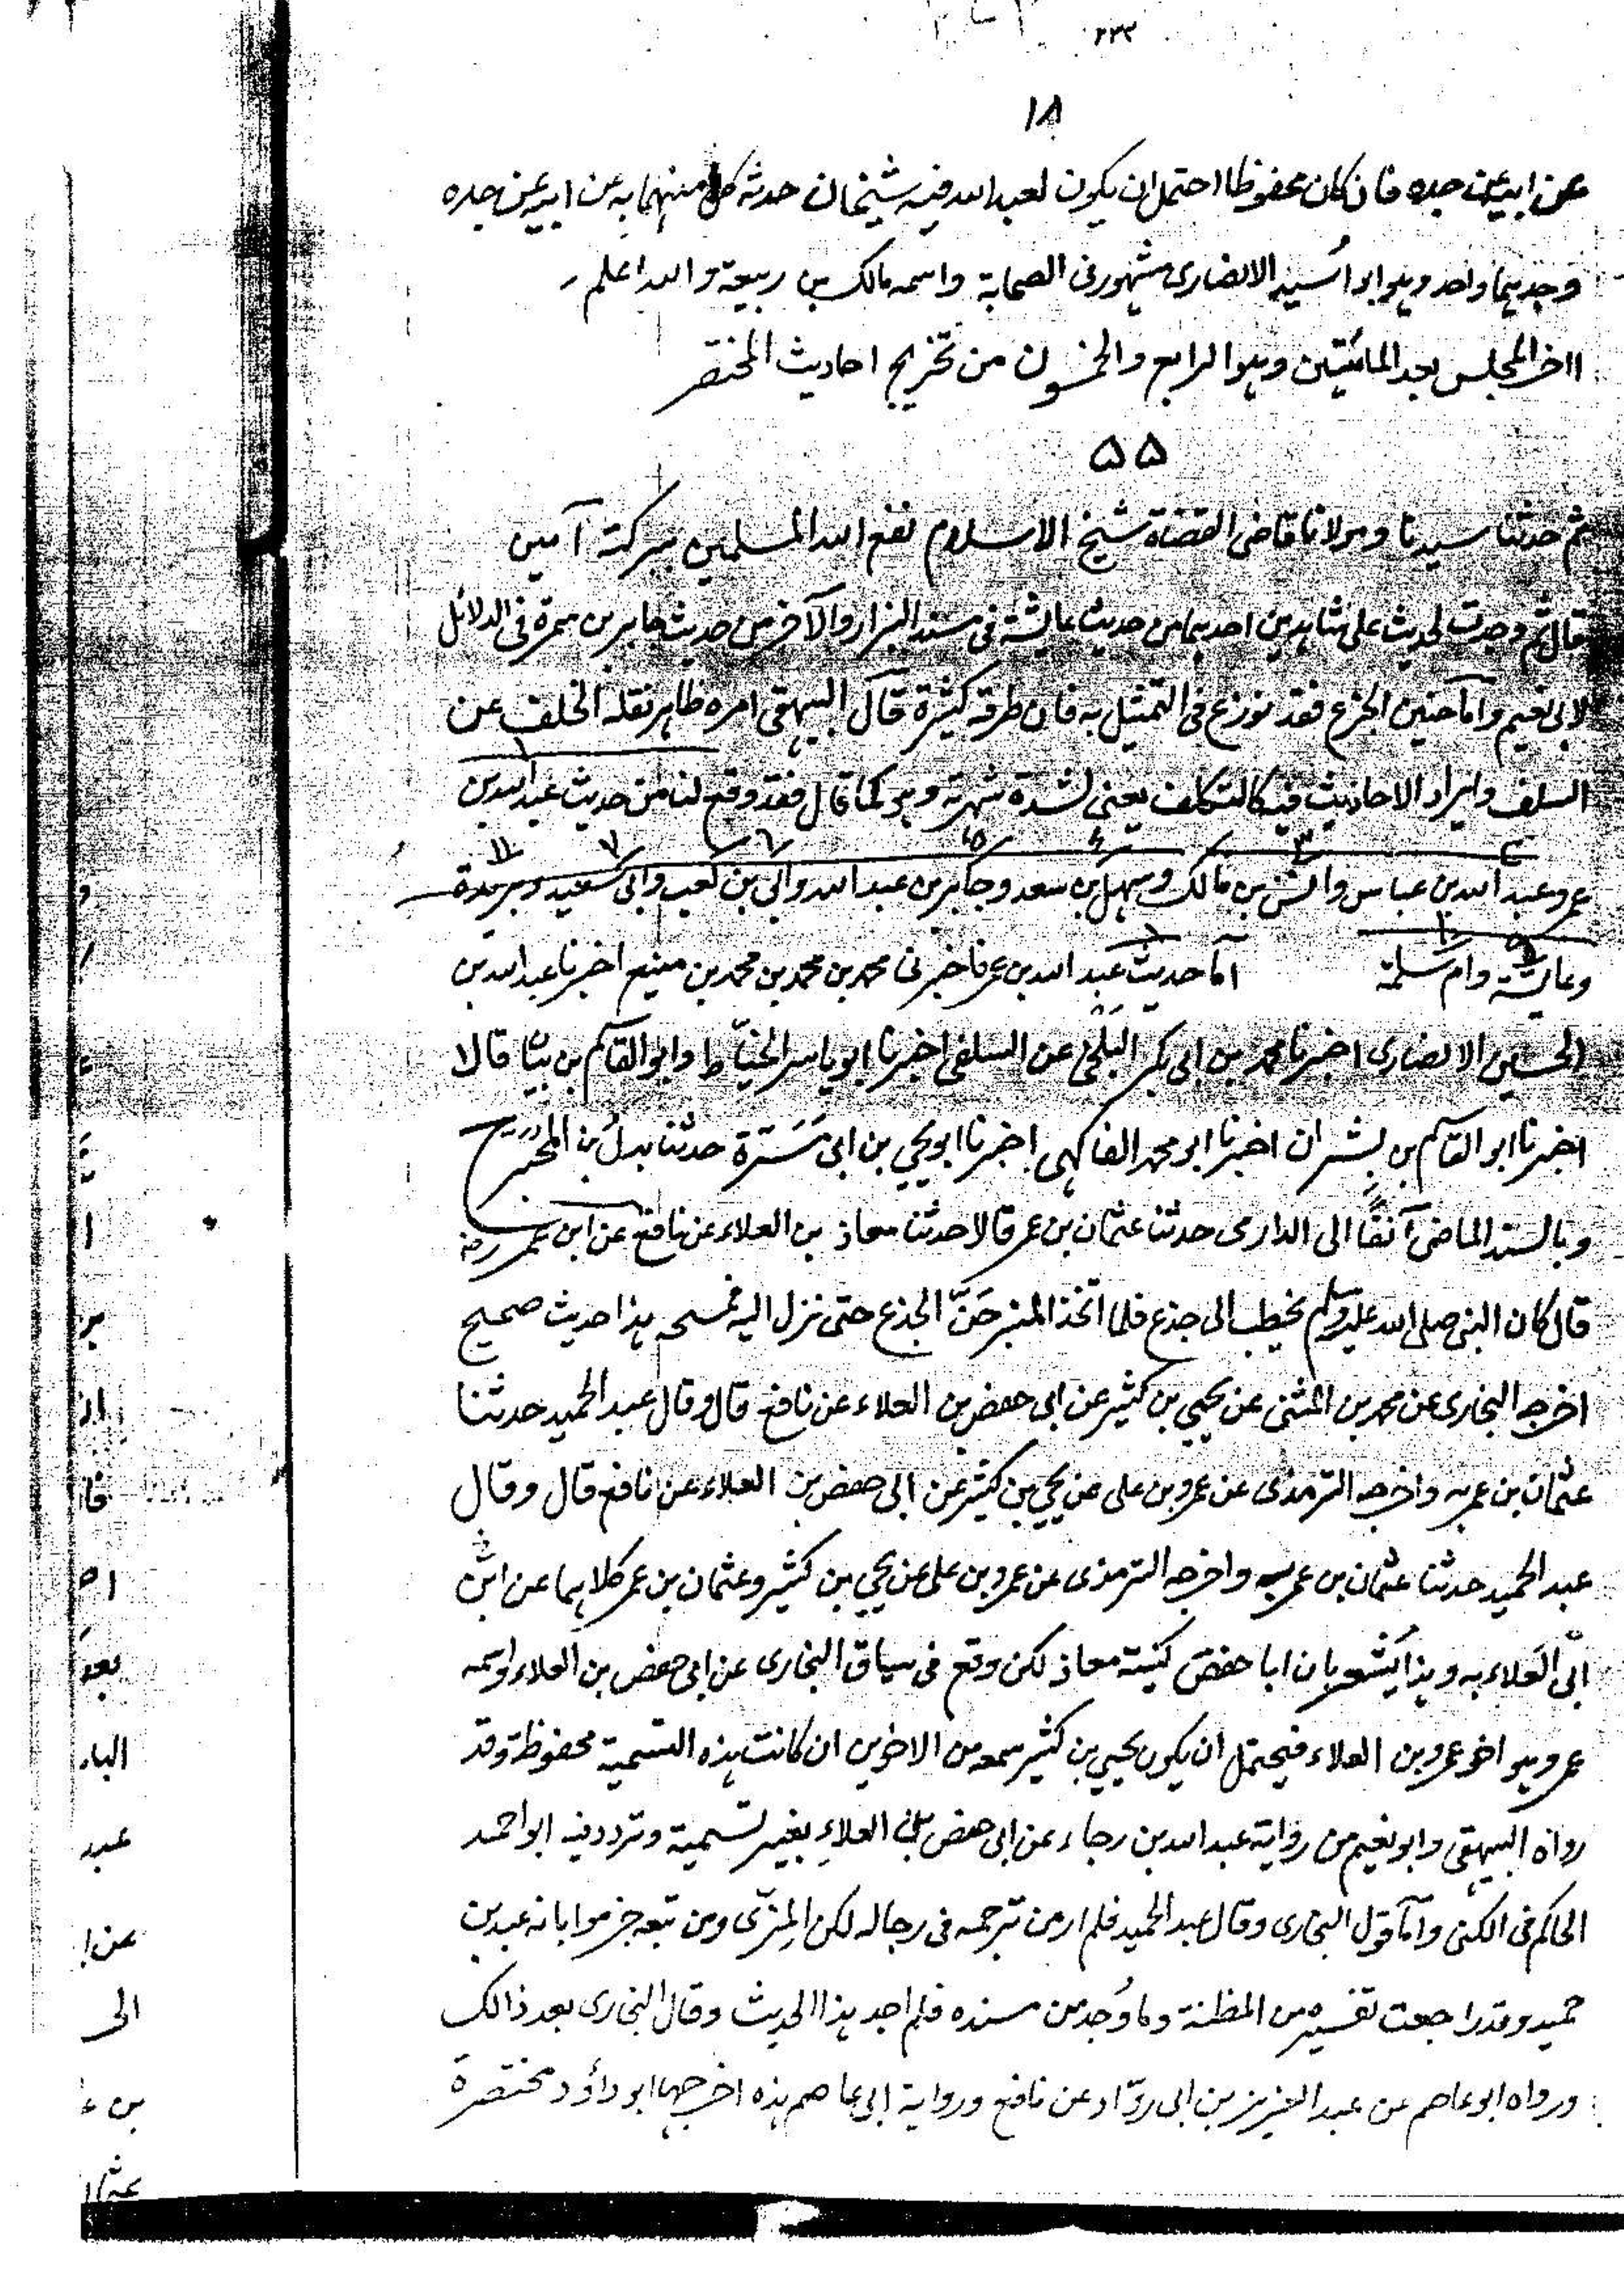 ٢٣٢
١٨
عن ابيه عن جده فان كان محفوظا احتمل ان يكون لعبد الله فيه شيخان حدثه كل منهما به عن ابيه عن جده
وجدهما واحد وهو ابو اُسيد الانصارى مشهور فى الصحابة واسمه مالك بن ربيعة والله اعلم
اخر المجلس بعد المائتين وهو الرابع والخمسون من تخريج احاديث المختصر
٥٥
ثم حدثنا سيدنا ومولانا قاضى القضاة شيخ الاسلام نفع الله المسلمين ببركته آمين
قال ثم وجدت لحديث على شاهدين احدهما من حديث عايشة فى مسند البزار والآخر من حديث جابر بن سمرة فى الدلائل
لابى نعيم وأما حنين الجذع فقد نوزع فى التمثيل به فان طرقه كثيرة قال البيهقى امره ظاهر نقله الخلف عن
السلف وايراد الاحاديث فيه كالتكلف يعنى لشدة شهرته وهو كما قال فقد وقع لنا من حديث عبد الله بن
عمر وعبد الله بن عباس وانس بن مالك وسهل بن سعد وجابر بن عبد الله وابى بن كعب وابى سعيد وبريدة
وعايشة وام سلمة أما حديث عبد الله بن عمر فاخبرنى محمد بن محمد بن محمد بن منيع اخبرنا عبد الله بن
الحسين الانصارى اخبرنا محمد بن ابى بكر البلخى عن السلفى اخبرنا ابو ياسر الخيّاط وابو القاسم بن بيان قالا
اخبرنا ابو القاسم بن بشران اخبرنا ابو محمد الفاكهى اخبرنا ابو يحيى بن ابى مَسَرّة حدثنا بدل بن المحبر ح
وبالسند الماضى آنفًا الى الدارمى حدثنا عثمان بن عمر قالا حدثنا معاذ بن العلاء عن نافع عن ابن عمر رضہ
قال كان النبى صلى الله عليه وسلم يخطب الى جذع فلما اتخذ المنبر حَنّ الجذع حتى نزل اليه فمسحه هذا حديث صحيح
اخرجه البخارى عن محمد بن المثنى عن يحيى بن كثير عن ابى حفص بن العلاء عن نافع قال وقال عبد الحميد حدثنا
عثمان بن عمر به واخرجه الترمذى عن عمرو بن على عن يحيى بن كثير عن ابى حفص بن العلاء عن نافع قال وقال
عبد الحميد حدثنا عثمان بن عمر به واخرجه الترمذى عن عمرو بن على عن يحيى بن كثير وعثمان بن عمر كلاهما عن ابن
ابى العلاء به وهذا يُشعر بان ابا حفص كنية معاذ لكن وقع فى سياق البخارى عن ابى حفص بن العلاء واسمه
عمر وهو اخو عمرو بن العلاء فيحتمل ان يكون يحيى بن كثير سمعه من الاخوين ان كانت هذه التسمية محفوظة وقد
رواه البيهقى وابو نعيم من رواية عبد الله بن رجاء عن ابى حفص بن العلاءِ بغير تسمية وتردد فيه ابو احمد
الحاكم فى الكنى وأما قول البخارى وقال عبد الحميد فلم ار من ترجمه فى رجاله لكن المِزّى ومن تبعه جزموا بانه عبد بن
حميد وقد راجعت تفسيره من المظنة وما وُجد من مسنده فلم اجد هذا الحديث وقال البخارى بعد ذالك
ورواه ابو عاصم عن عبد العزيز بن ابى روّاد عن نافع ورواية ابى عاصم هذه اخرجها ابو داؤد مختصرة